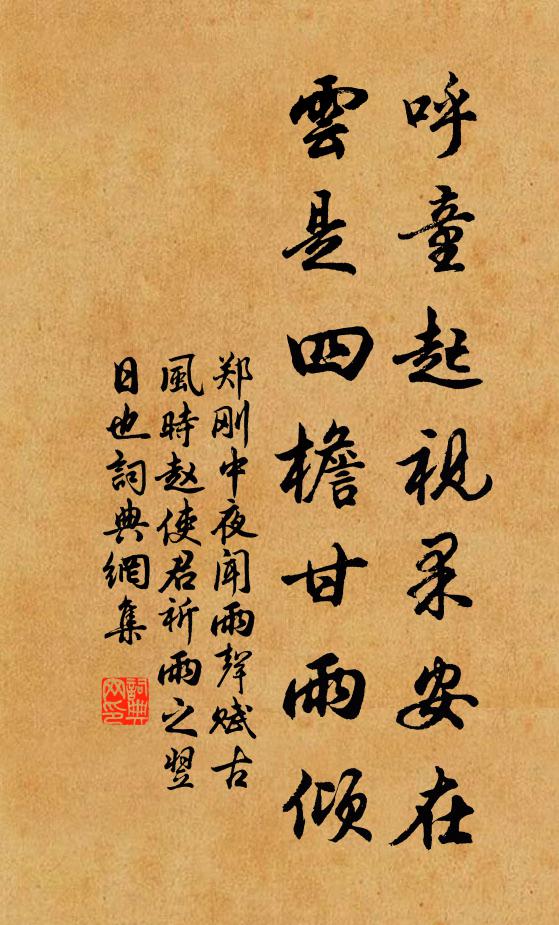 呼童起視果安在
雲是四檐甘雨傾
郑刚中夜闻雨聲賦古
風時赵使君祈雨之翌
日也詞典網集
詞典网印